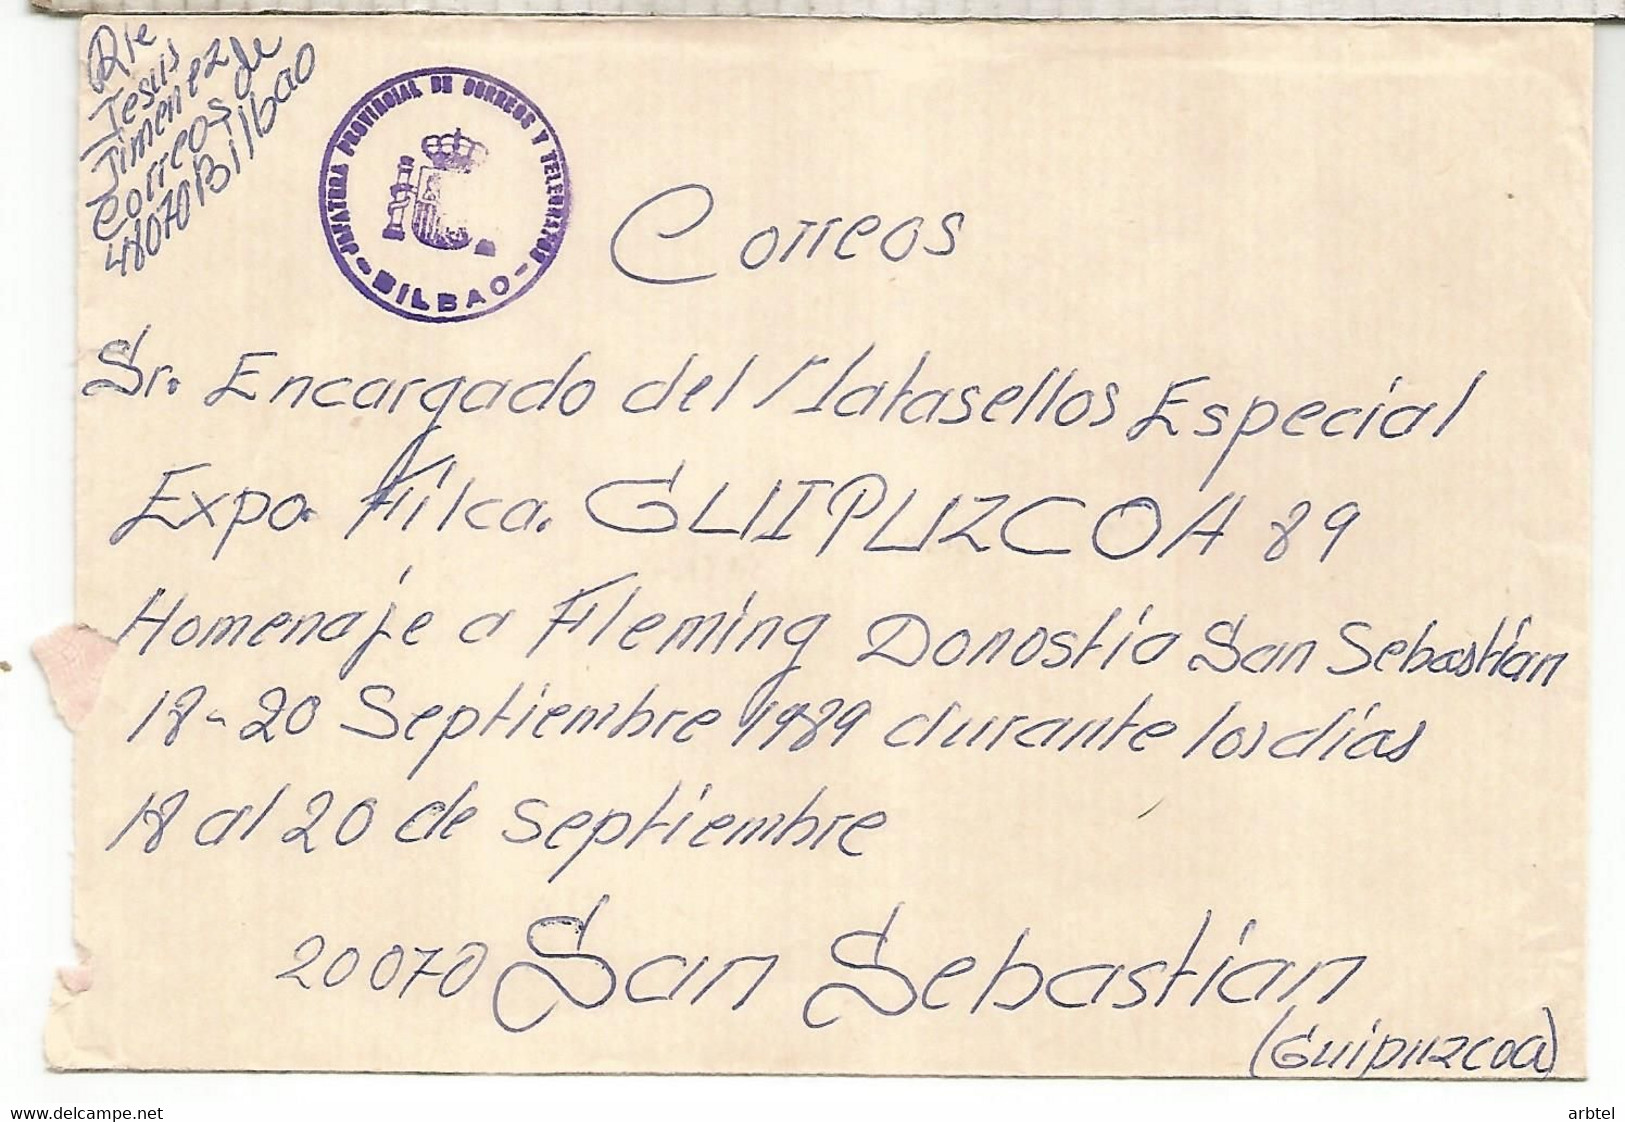 Rte
Jesus
Jimenez
Correos de
48070 Bilbao
JEFATURA PROVINCIAL DE CORREOS Y TELEGRAFOS
- BILBAO -
Correos
Sr. Encargado del Matasellos Especial
Expo. Filca. GUIPUZCOA 89
Homenaje a Fleming Donostia San Sebastian
18-20 Septiembre 1989 durante los días
18 al 20 de septiembre
20070 San Sebastian
(Guipuzcoa)
delcampe.net
arbtel